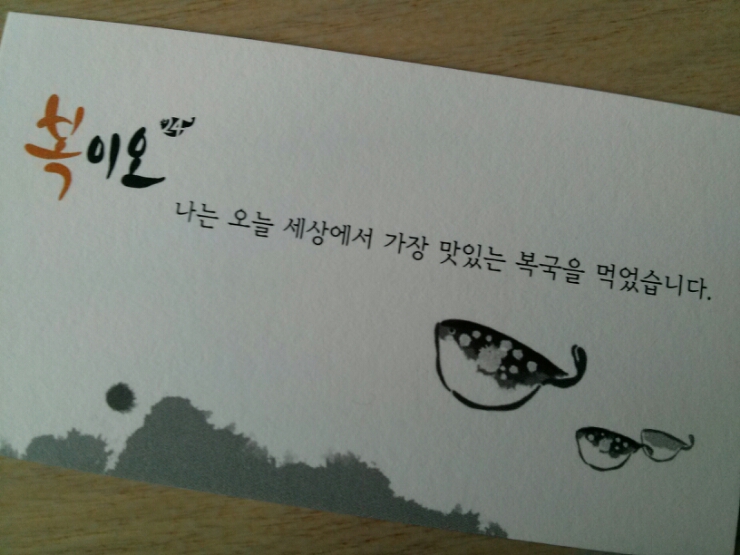 복이오
나는 오늘 세상에서 가장 맛있는 복국을 먹었습니다.